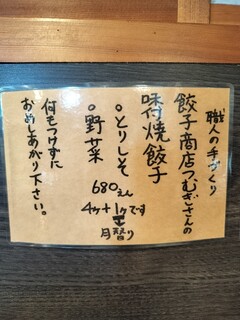 職人の手づくり
餃子商店つむぎさんの
味付焼餃子
○とりしそ
○野菜
680えん
4ヶ+1ヶです
月替り
何もつけずに
おめしあがり下さい。